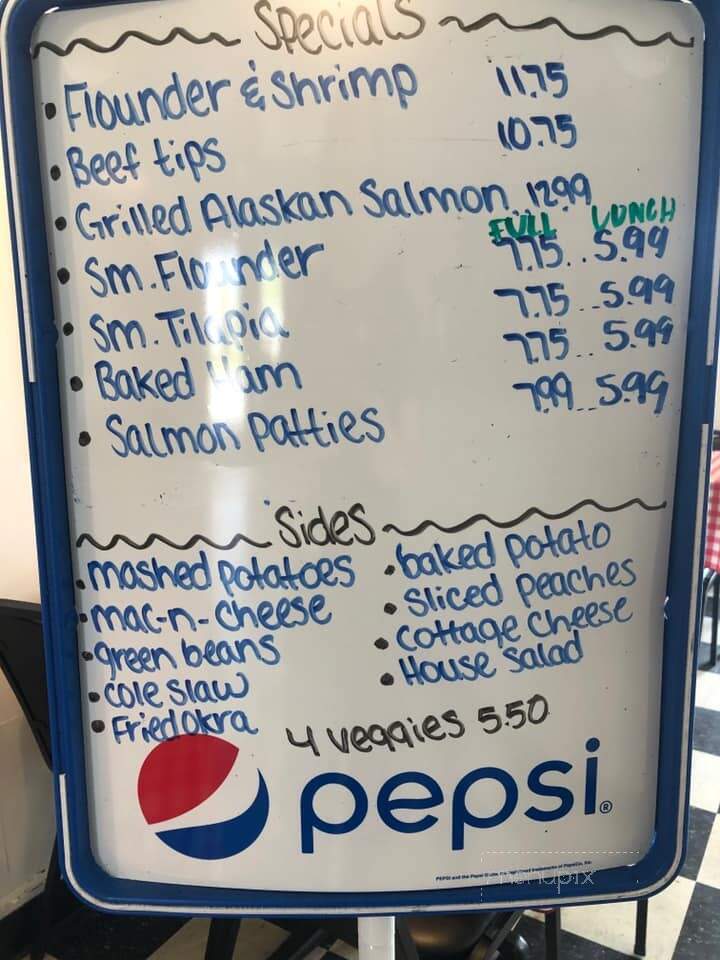 Specials
• Flounder & Shrimp 11.75
• Beef tips 10.75
• Grilled Alaskan Salmon 12.99
FULL LUNCH
• Sm. Flounder 7.75..5.99
• Sm. Tilapia 7.75..5.99
• Baked Ham 7.75..5.99
• Salmon Patties 7.99..5.99
Sides
• mashed potatoes
• mac-n-cheese
• green beans
• cole slaw
• Fried okra
• baked potato
• Sliced peaches
• Cottage Cheese
• House Salad
4 veggies 5.50
pepsi®
PEPSI and the Pepsi Globe are registered trademarks of PepsiCo, Inc.
menupix